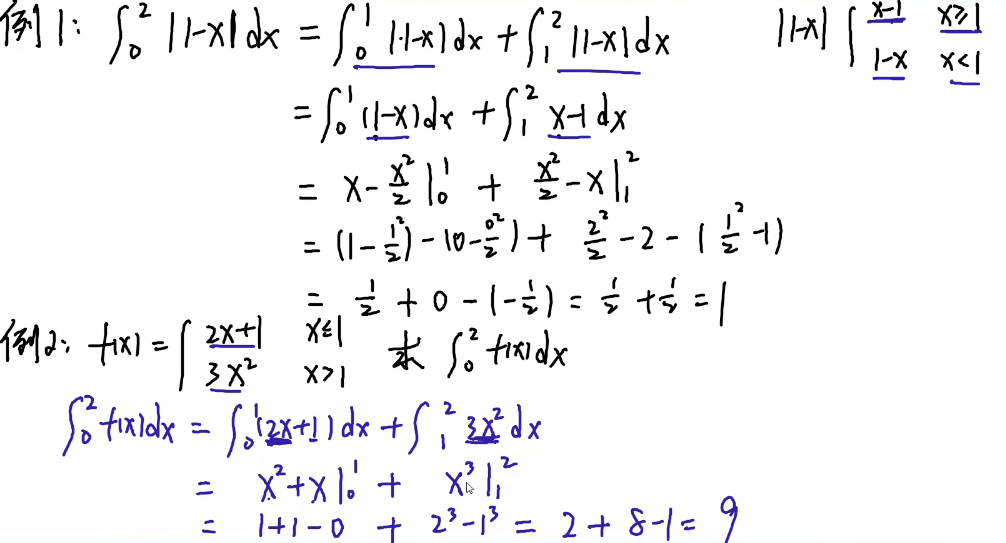 例1: ∫₀² |1-x| dx = ∫₀¹ |1-x| dx + ∫₁² |1-x| dx |1-x| { x-1 x≥1
1-x x<1
= ∫₀¹ (1-x) dx + ∫₁² x-1 dx
= x - x²/2 |₀¹ + x²/2 - x |₁²
= (1 - 1²/2) - (0 - 0²/2) + 2²/2 - 2 - (1²/2 - 1)
= 1/2 + 0 - (-1/2) = 1/2 + 1/2 = 1
例2: f(x) = { 2x+1 x≤1 求 ∫₀² f(x) dx
3x² x>1
∫₀² f(x) dx = ∫₀¹ (2x+1) dx + ∫₁² 3x² dx
= x² + x |₀¹ + x³ |₁²
= 1+1-0 + 2³-1³ = 2+8-1 = 9